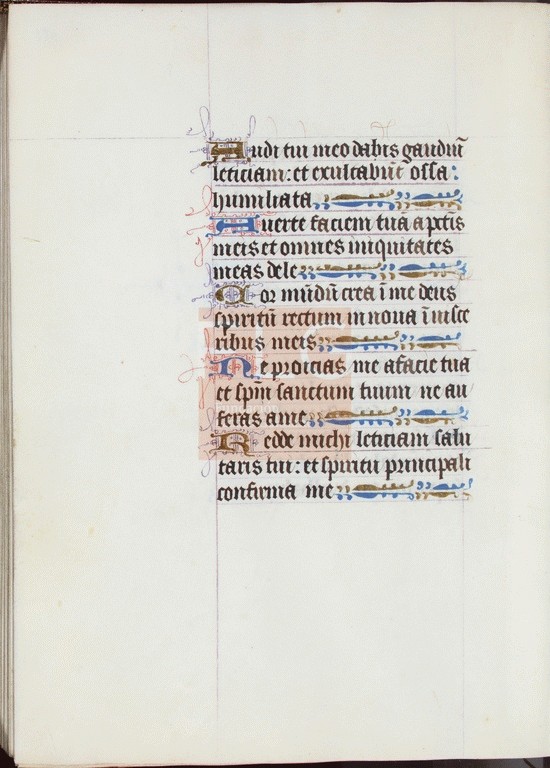 Audi tui meo dabis gaudiū
leticiam: et exultabūt ossa:
humiliata
Auerte faciem tuā a pctīs
meis et omnes iniquitates
meas dele
Cor mūdū crea ī me deus
spiritū rectum innoua ī uisce
ribus meis
Ne proicias me afacie tua
et spm̄ sanctum tuum ne au
feras ame
Redde michi leticiam salu
taris tui: et spiritu principali
confirma me